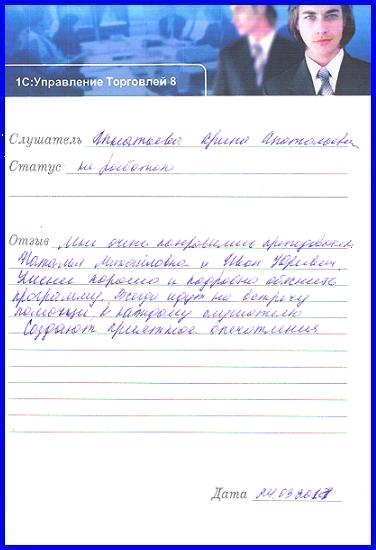 1С:Управление Торговлей 8
Слушатель Игнатьева Ирина Анатольевна
Статус не работаю
Отзыв Мне очень понравились преподаватели
Наталия Михайловна и Иван Юрьевич.
хорошо и подробно объяснить
программу. Всегда идут на встречу
помощи к каждому слушателю
Создают приятное впечатления
Дата 24.03.2011